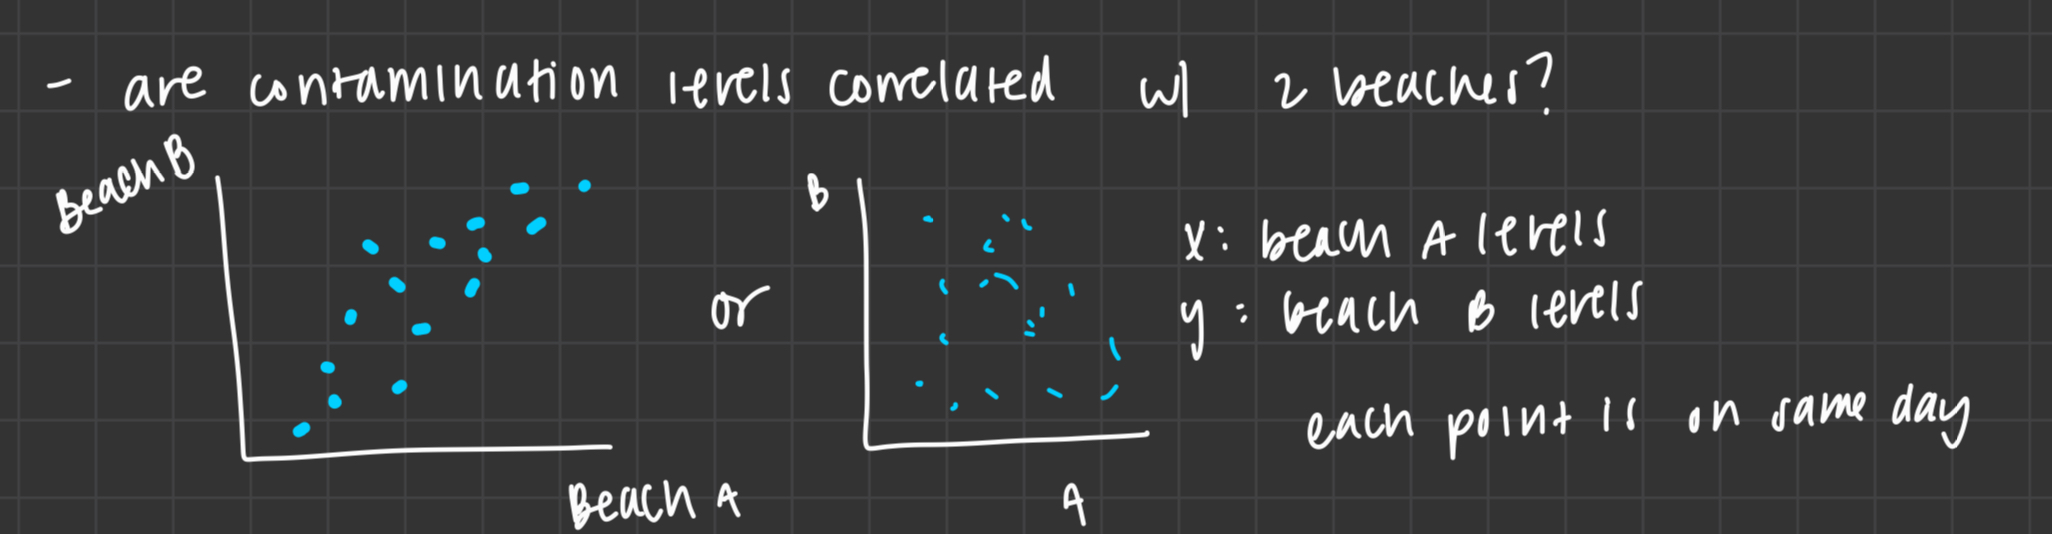 - are contamination levels correlated w/ 2 beaches?
Beach B
Beach A
or
B
A
x: beach A levels
y: beach B levels
each point is on same day